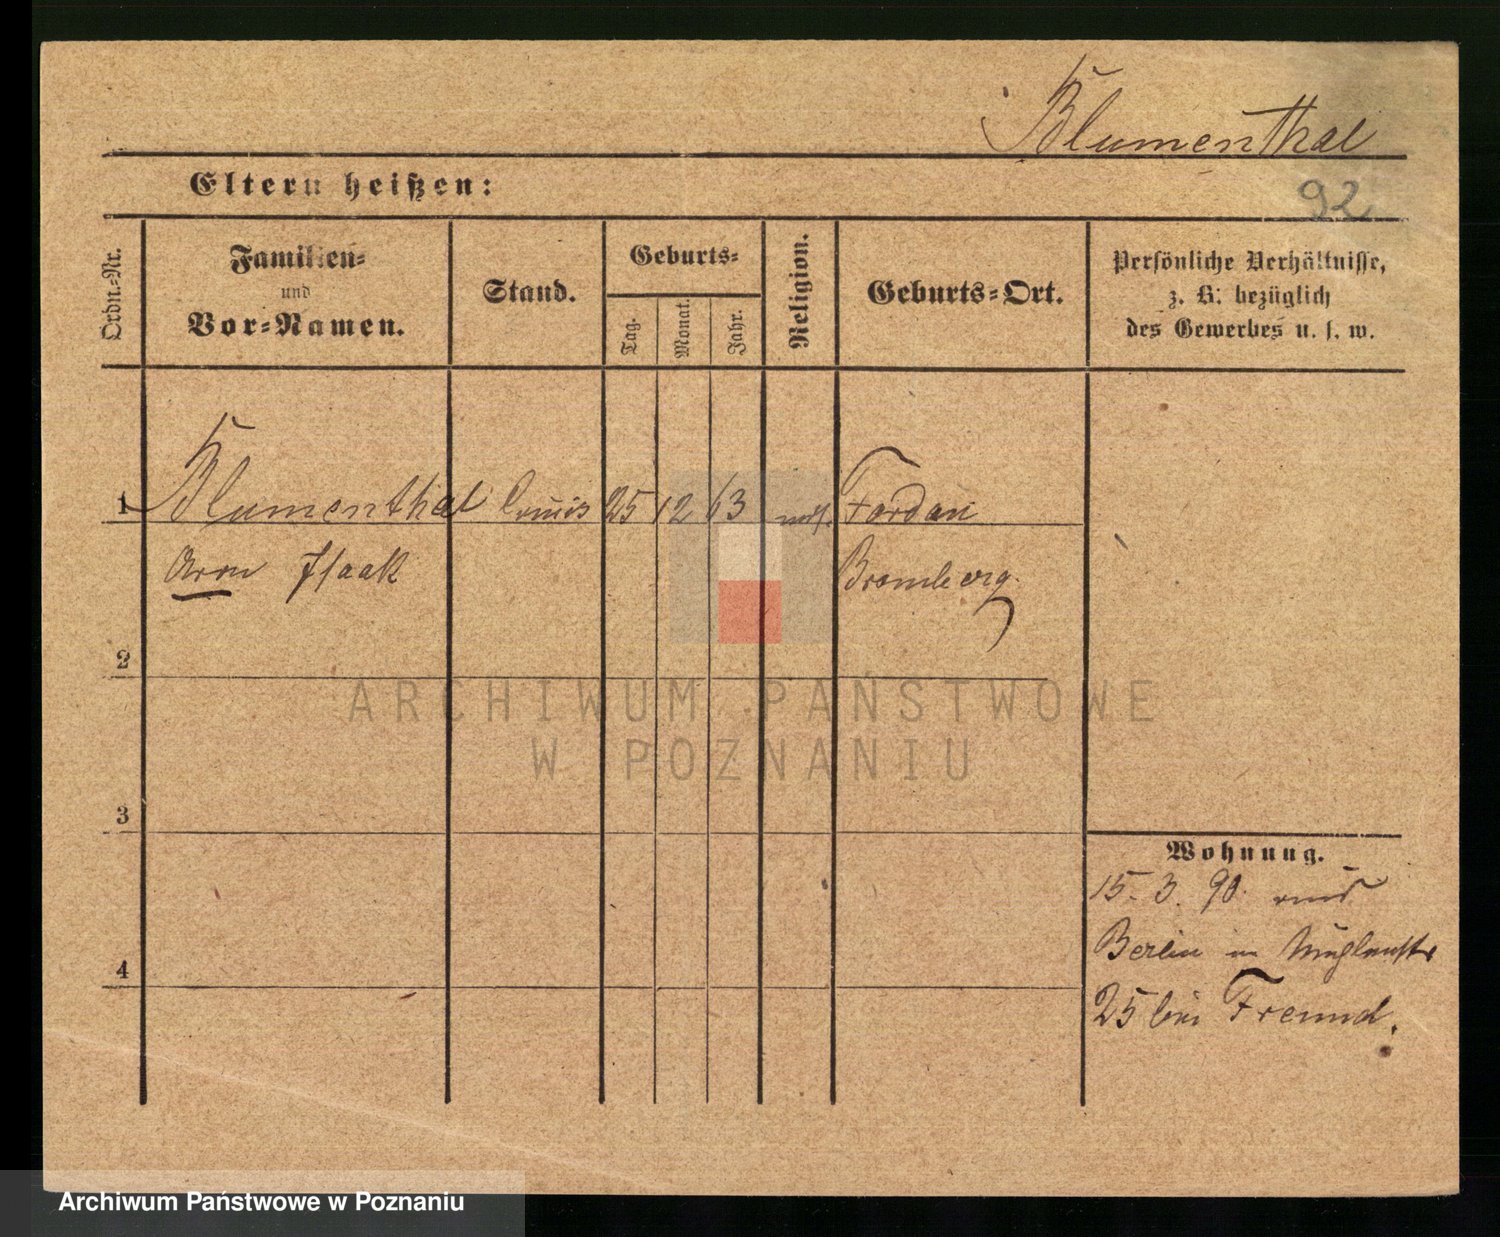 Blumenthal
Eltern heißen:
92
Ordn.-Nr.
Familien-
und
Vor-Namen.
Stand.
Geburts-
Tag.
Monat.
Jahr.
Religion.
Geburts-Ort.
Persönliche Verhältnisse,
z. B. bezüglich
des Gewerbes u. s. w.
1 Blumenthal 25 12 63 mos. Fordon
Aron Isaak Bromberg.
2
ARCHIWUM PAŃSTWOWE
W POZNANIU
3
Wohnung.
15. 3. 90. aus
Berlin in
4
25 bei Freund.
Archiwum Państwowe w Poznaniu